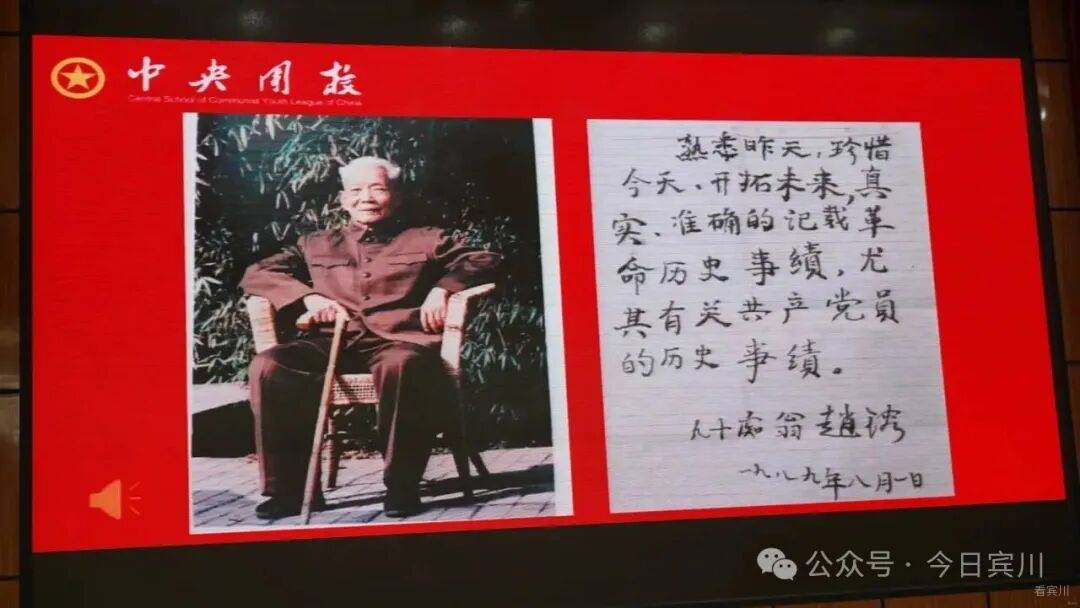 中央团校
Central School of Communist Youth League of China
熟悉昨天，珍惜
今天、开拓未来，真
实、准确的记载革
命历史事绩，尤
其有关共产党员
的历史事绩。
九十痴翁趙镕
一九八九年八月一日
公众号·今日宾川
看宾川